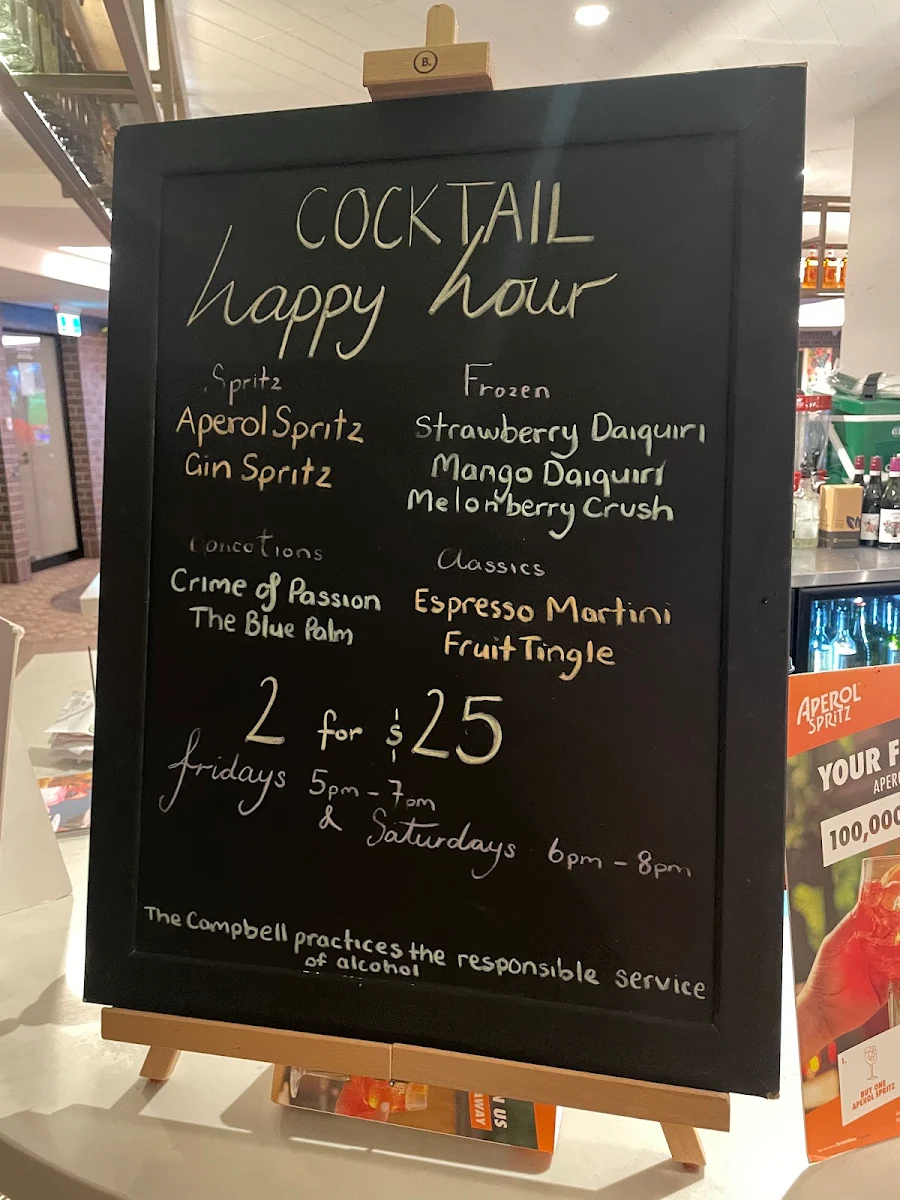 B.
COCKTAIL
happy hour
Spritz
Aperol Spritz
Gin Spritz
Frozen
Strawberry Daiquiri
Mango Daiquiri
Melonberry Crush
Concotions
Crime of Passion
The Blue Palm
Classics
Espresso Martini
Fruit Tingle
2 for $25
fridays 5pm - 7pm
& Saturdays 6pm - 8pm
The Campbell practices the responsible service
of alcohol
APEROL
SPRITZ
YOUR F
APER
100,000
1.
BUY ONE
APEROL SPRITZ
N US
AWAY